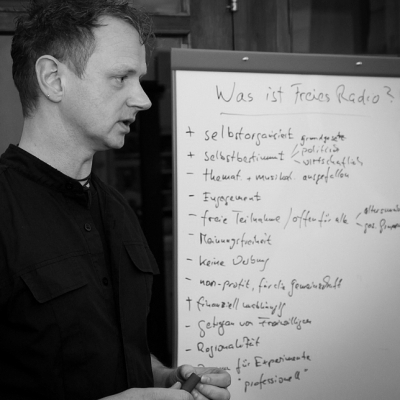 Was ist Freies Radio?
+ selbstorganisiert grundgesetz
+ selbstbestimmt politisch
wirtschaftlich
- themat. + musikal. ausgefallen
- Engagement
- freie Teilnahme / offen für alle
- Mainungsfreiheit
- keine Werbung
- non-profit, für die Gemeinschaft
+ finanziell unabhängig
- Getragen von Freiwilligen
- Regionalität
- für Experimente
"professionell"